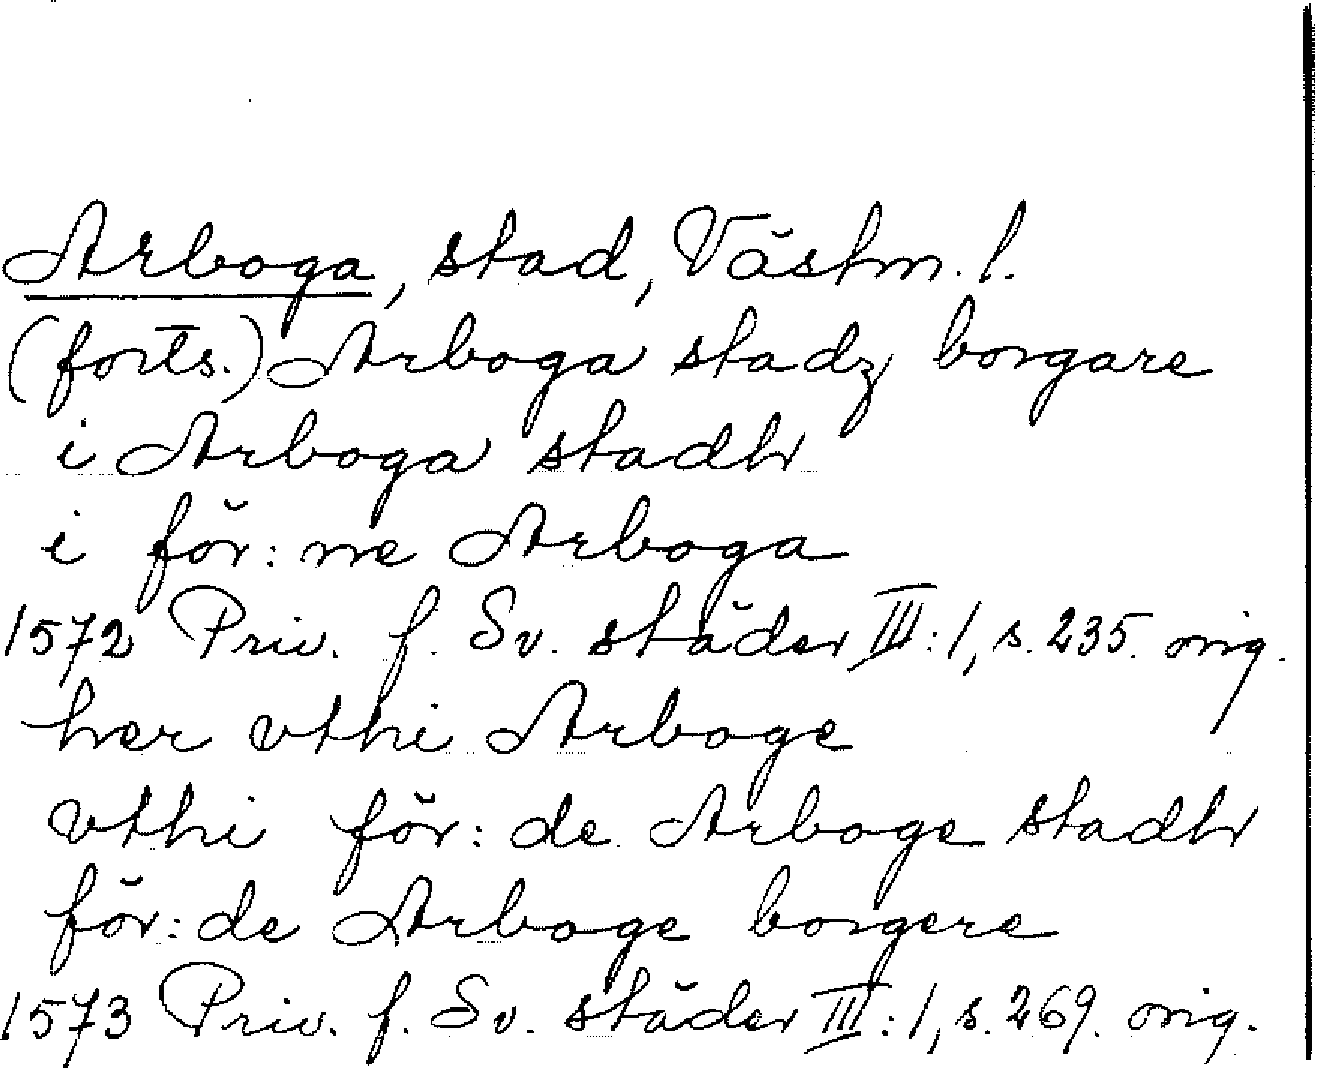 Arboga, stad, Västm. l.
(forts.) Arboga stadz borgare
i Arboga stadh
i för: ne Arboga
1572 Priv. f. Sv. städer III:1, s. 235. orig.
her vthi Arboge
vthi för: de Arboge stadh
för: de Arboge borgere
1573 Priv. f. Sv. städer III:1, s. 269. orig.